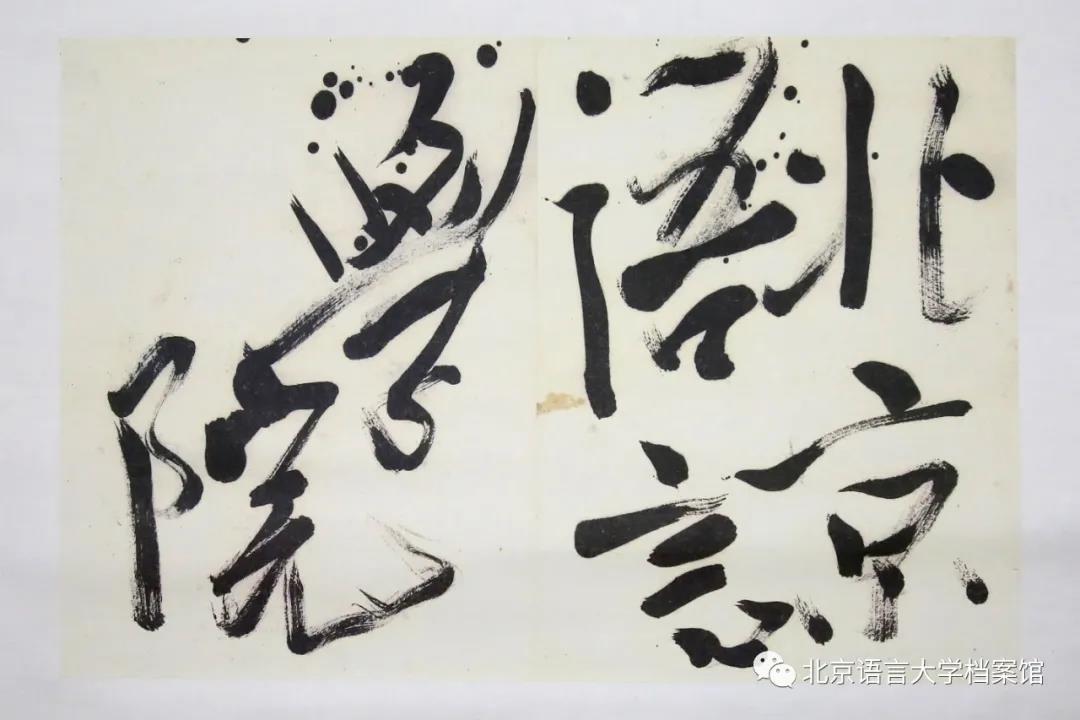 北京
语言
學院
北京语言大学档案馆